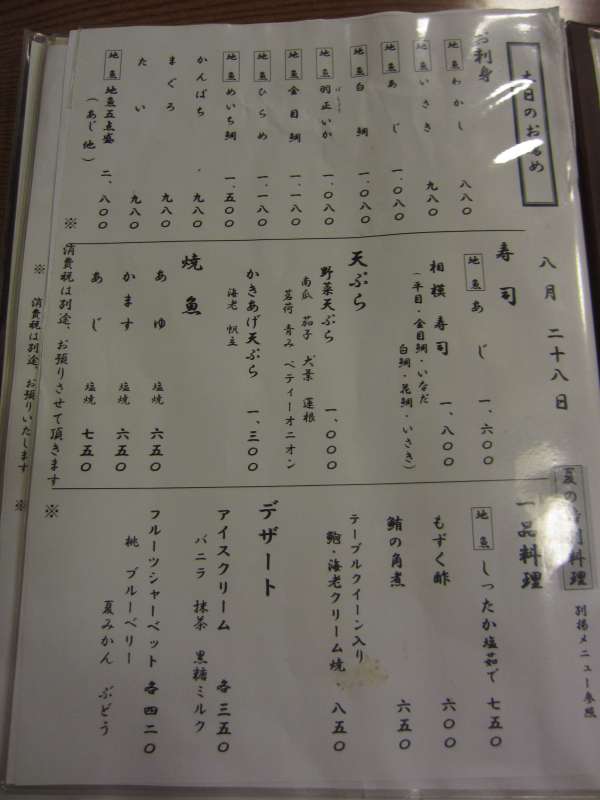 本日のおすすめ
八月二十八日
夏の特別料理
別揚メニュー参照
お刺身
地魚 わかし 八八〇
地魚 いさき 九八〇
地魚 あじ 一、〇八〇
地魚 白鯛 一、〇八〇
地魚 羽正いか 一、〇八〇
地魚 金目鯛 一、一八〇
地魚 ひらめ 一、一八〇
地魚 めいち鯛 一、五〇〇
かんぱち 九八〇
まぐろ 九八〇
たい 九八〇
地魚 地魚五点盛 二、八〇〇
(あじ 他)
寿司
地魚 あじ 一、六〇〇
相模寿司 一、八〇〇
(平目・金目鯛・いなだ
白鯛・花鯛・いさき)
天ぷら
野菜天ぷら 一、〇〇〇
南瓜 茄子 大葉 蓮根
茗荷 青み ペティーオニオン
かきあげ天ぷら 一、三〇〇
海老 帆立
焼魚
あゆ 塩焼 六五〇
かます 塩焼 六五〇
あじ 塩焼 七五〇
一品料理
地魚 しったか塩茹で 七五〇
もずく酢 六〇〇
鮪の角煮 六五〇
テーブルクイーン入り
鮑・海老クリーム焼 八五〇
デザート
アイスクリーム 各三五〇
バニラ 抹茶 黒糖ミルク
フルーツシャーベット 各四二〇
桃 ブルーベリー
夏みかん ぶどう
※ 消費税は別途、お預りさせて頂きます ※
※ 消費税は別途、お預りいたします ※